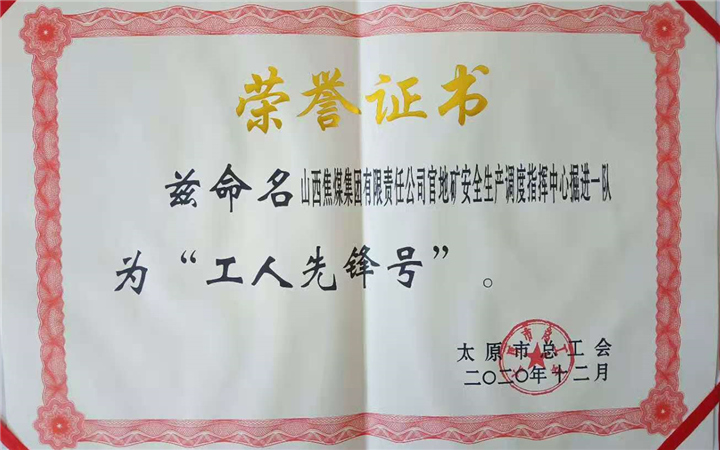 荣誉证书
兹命名山西焦煤集团有限责任公司官地矿安全生产调度指挥中心掘进一队
为“工人先锋号”。
太原市总工会
二〇二〇年十二月